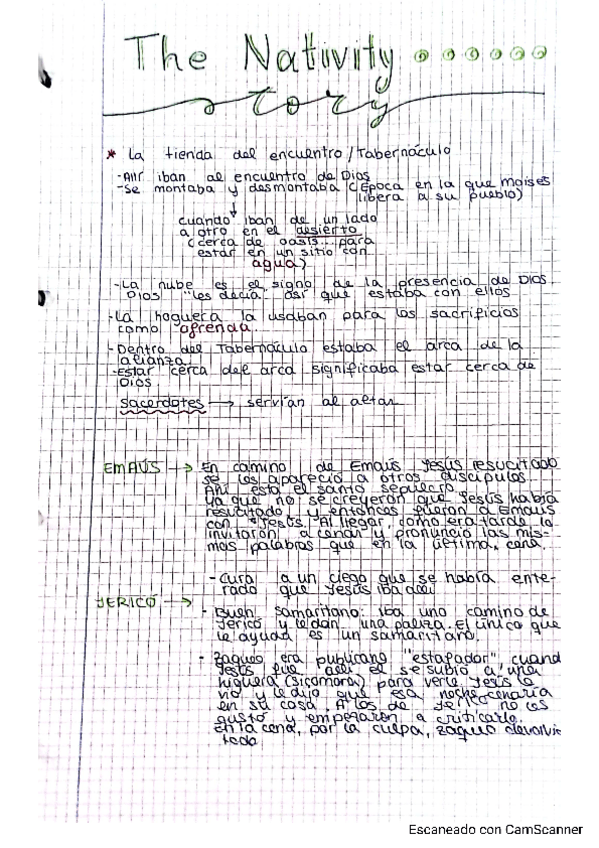 The Nativity
story
* La tienda del encuentro / Tabernáculo
- Allí iban al encuentro de Dios
- Se montaba y desmontaba (época en la que moises
libera a su pueblo)
cuando iban de un lado
a otro en el desierto
(cerca de oasis... para
estar en un sitio con
agua)
- La nube es el signo de la presencia de Dios
Dios "les decía" así que estaba con ellos
- La hoguera la usaban para los sacrificios
como ofrenda.
- Dentro del Tabernáculo estaba el arca de la
alianza.
- Estar cerca del arca significaba estar cerca de
Dios
Sacerdotes → servían al altar
EMAÚS → En camino de Emaús Jesús resucitado
se les apareció a otros discípulos.
Ahí está el santo sepulcro.
Ya que no se creyeron que Jesús había
resucitado, y entonces fueron a Emaús
con Jesús. Al llegar, como era tarde lo
invitaron a cenar y pronunció las mis-
mas palabras que en la última cena.
- Cura a un ciego que se había ente-
rado que Jesús iba allí
JERICÓ →
- Buen samaritano: iba uno camino de
Jericó y le dan una paliza. El único que
le ayuda es un samaritano.
- Zaqueo era publicano "estafador" cuand
Jesús fue allí el se subió a una
higuera (sicomoro) para verle. Jesús le
vio y le dijo que esa noche cenaría
en su casa. A los de Jericó no les
gustó y empezaron a criticarle.
En la cena, por la culpa, Zaqueo devolvió
todo
Escaneado con CamScanner